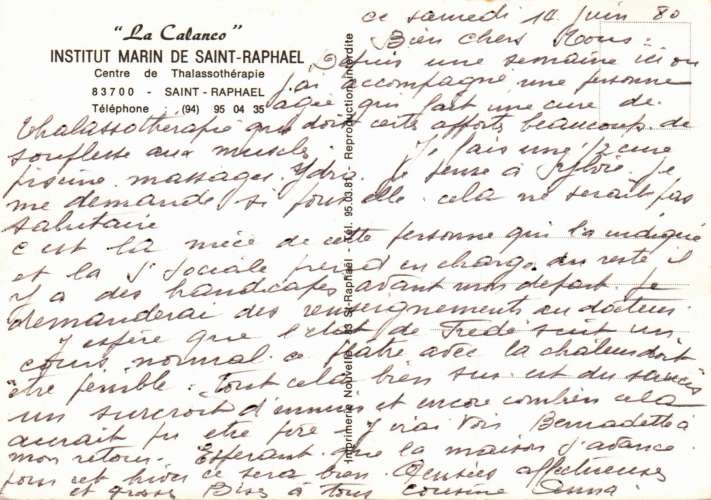 "La Calanco"
INSTITUT MARIN DE SAINT-RAPHAEL
Centre de Thalassothérapie
83700 - SAINT-RAPHAEL
Téléphone : (94) 95 04 35
Imprimerie Nouvelle - 83 St-Raphaël - Tél. 95.03.81 Reproduction interdite
ce samedi 14 Juin 80
Bien chers Vous :
Depuis une semaine ici ou
j'ai accompagné une personne
agée qui fait une cure de
thalassothérapie qui doit certes apporter beaucoup de
souplesse aux muscles. Je fais une 1/2 cure
piscine massages Je pense à Sylvie Je
me demande si pour elle cela ne serait pas
salutaire
c'est la nièce de cette personne qui l'a indiqué
et la S Sociale prend en charge du reste il
y a des handicapés avant mon départ Je
demanderai des renseignements au docteur.
J'espère que l'état de Frédé suit un
cours normal ce plâtre avec la chaleur doit
être penible. tout cela bien sur est du
un surcroit d'ennuis et encore combien cela
aurait pu etre pire - J'irai voir Bernadette à
mon retour. Esperant que la maison s'avance.
pour cet hiver ce sera bien. Pensées affectueuses
et grosses Bises à tous cousine Anna